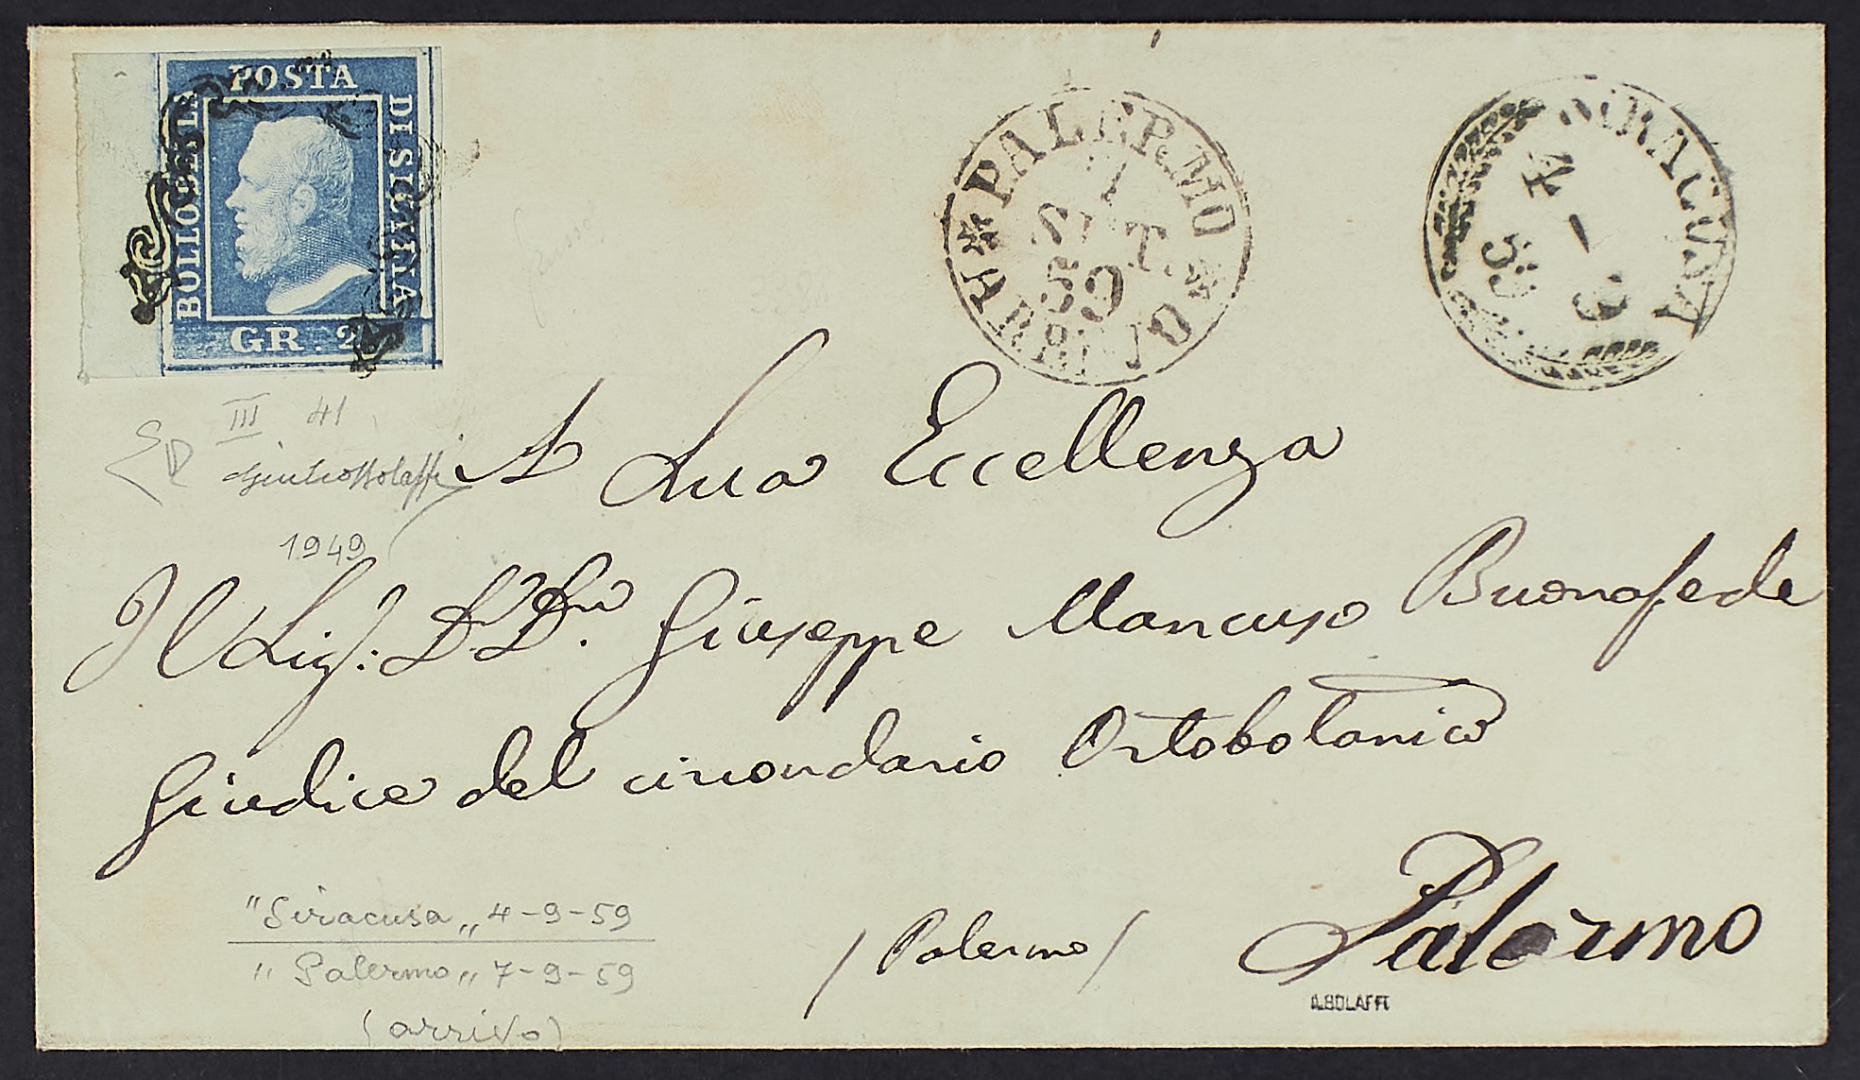 POSTA
BOLLO DELLA
DI SICILIA
GR. 2
PALERMO
7
SET.
59
ARRIVO
SIRACUSA
4 - 9
59
III 41
GiulioBolaffi
1949
A Sua Eccellenza
Il Sig: D. D.n Giuseppe Mancuso Buonafede
Giudice del circondario Ortobotanico
/Palermo/
Palermo
A.BOLAFFI
"Siracusa„ 4-9-59
"Palermo„ 7-9-59
(arrivo)